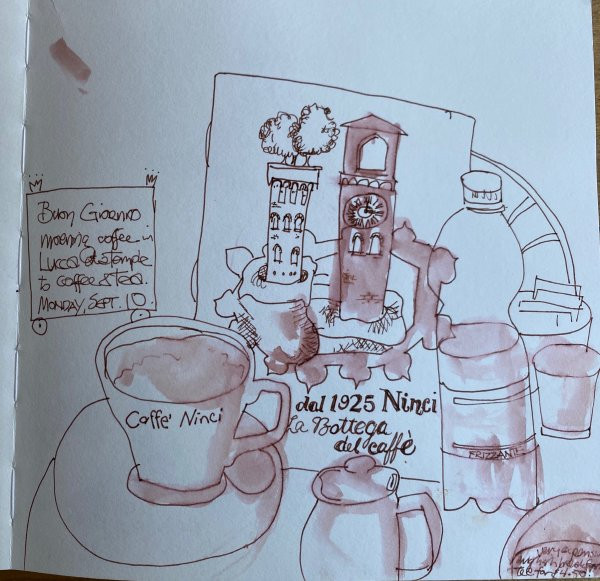 Buon Giorno
morning coffee in
Lucca
to coffee & tea.
MONDAY, SEPT. 10.
Caffe' Ninci
dal 1925 Ninci
La Bottega
del caffè
FRIZZANTE